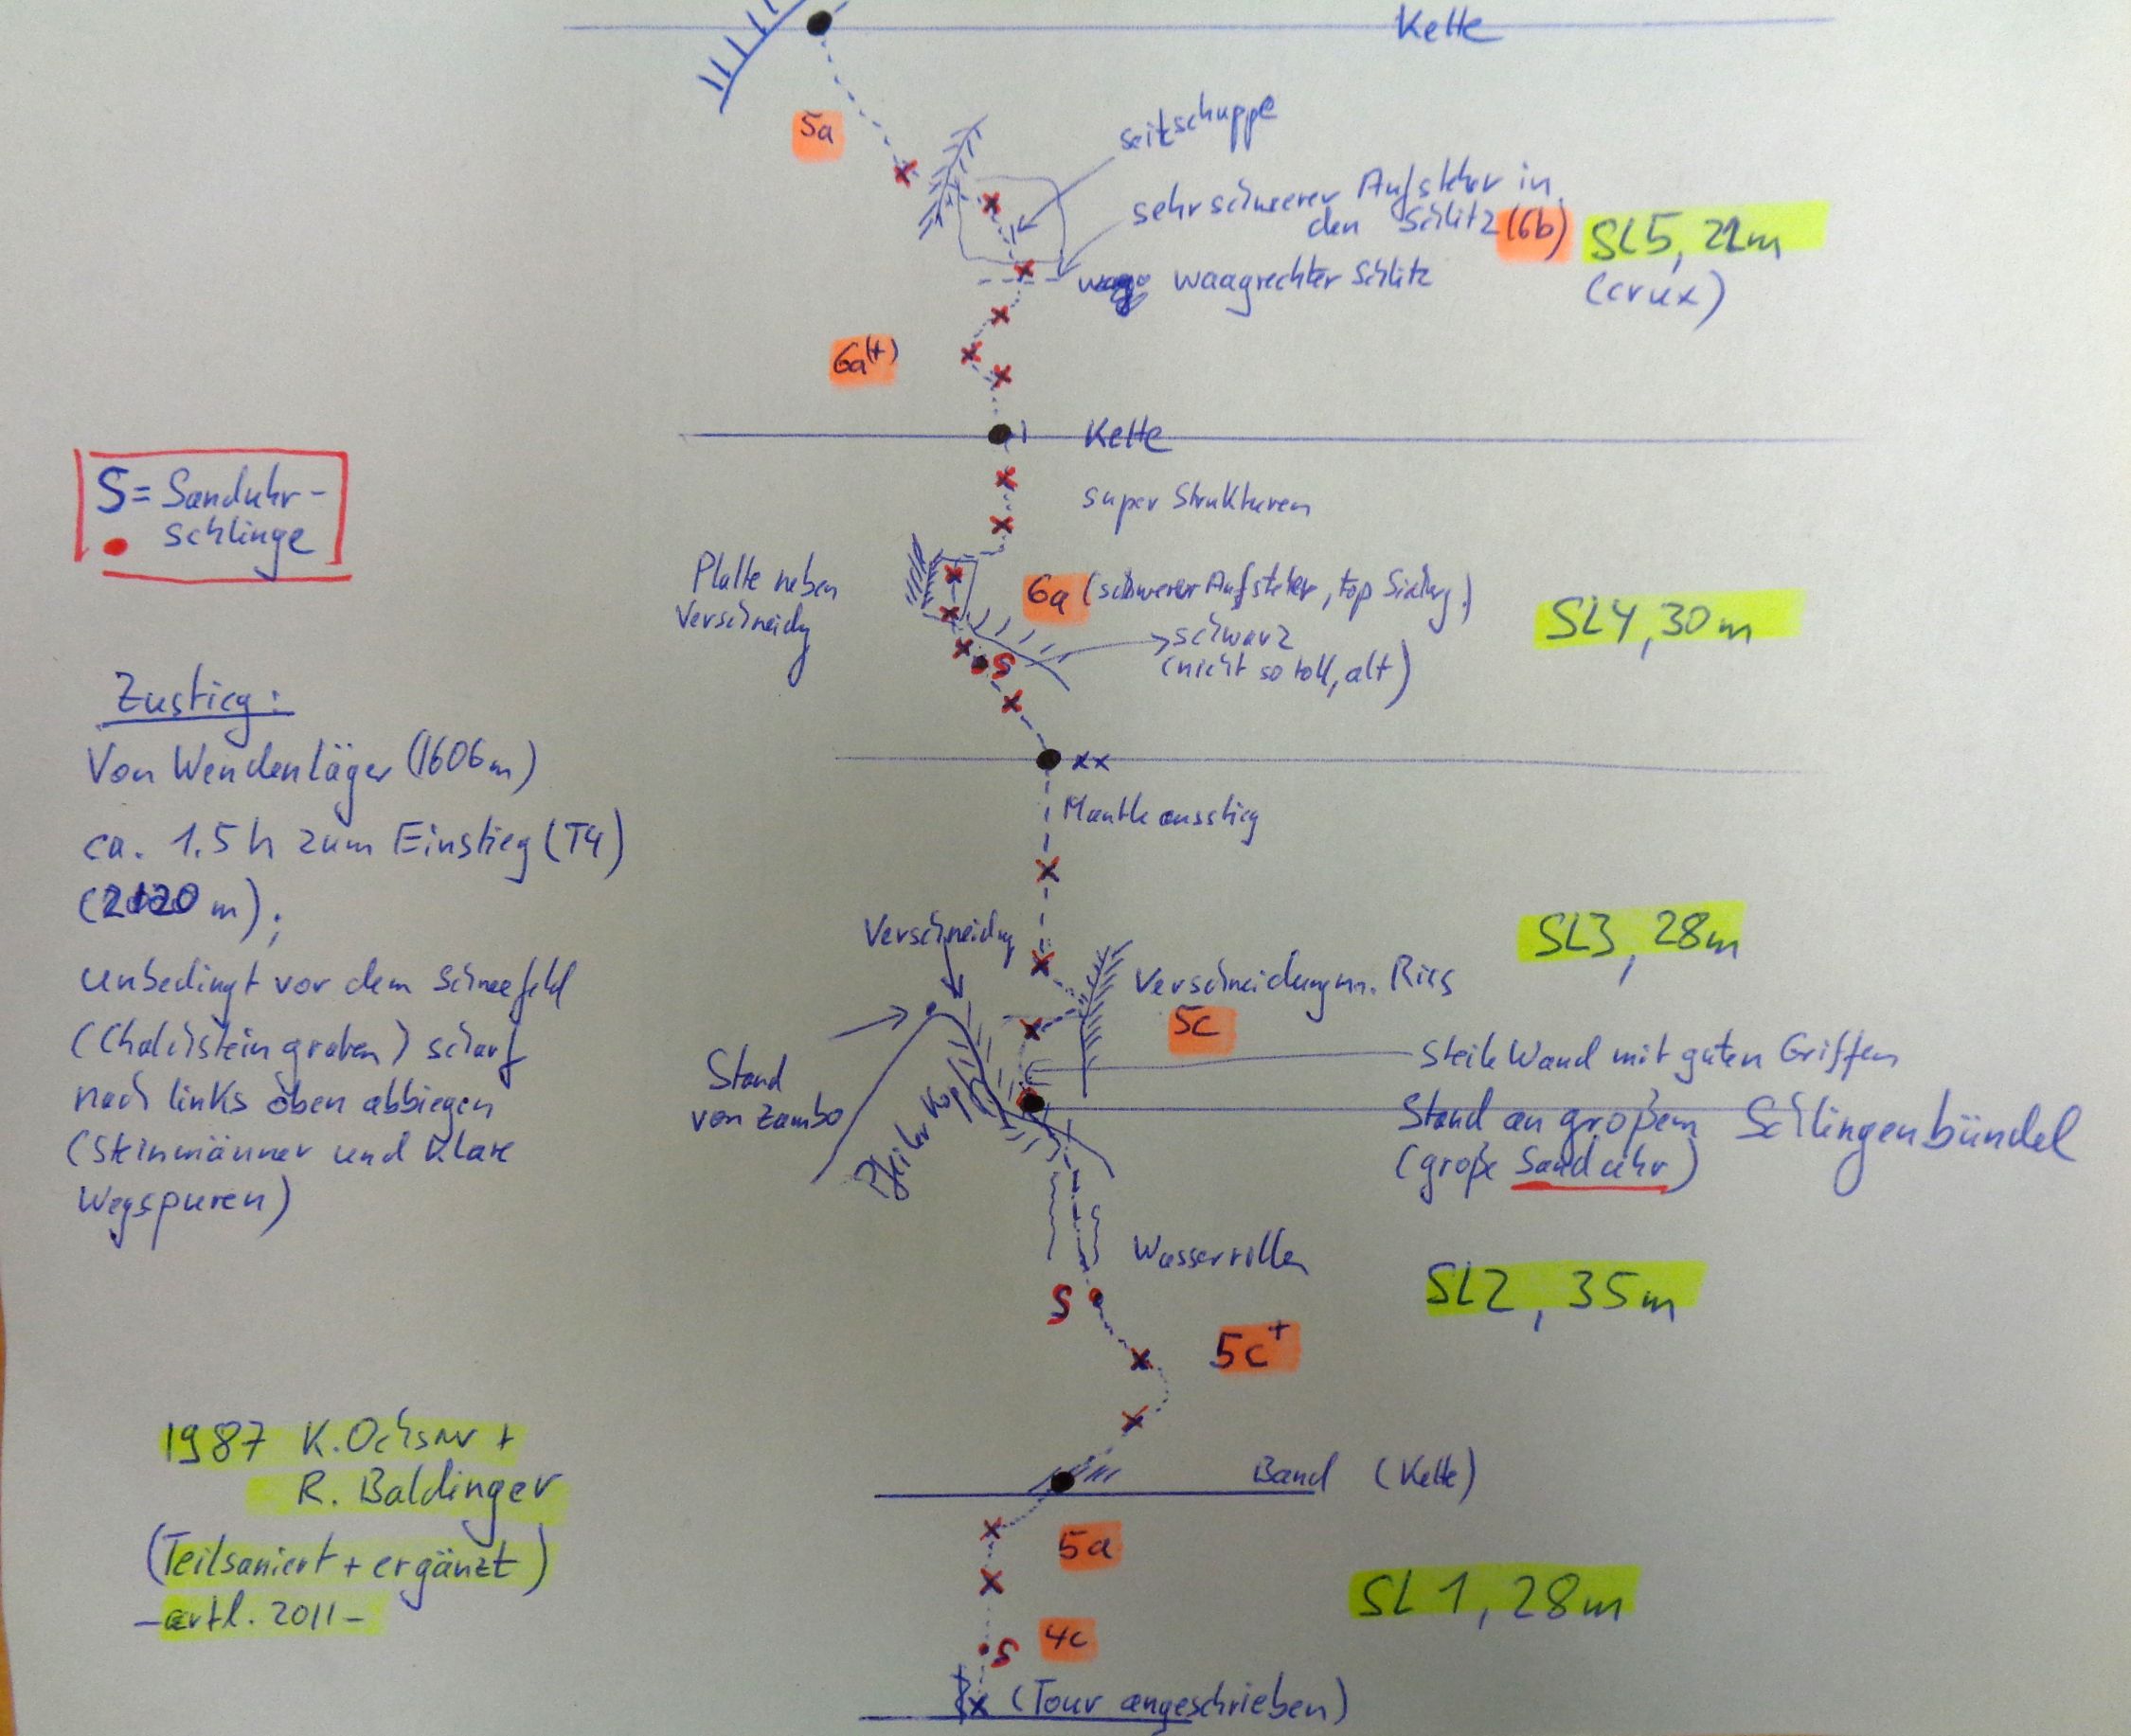 Kette
5a
Seitschuppe
sehr schwerer Aufsteher in
den Schlitz (6b)
SL5, 22m
(crux)
waagrechter Schlitz
6a(+)
Kette
super Strukturen
S = Sanduhr-
schlinge
Platte neben
Verschneidg
6a (schwerer Aufsteher, top Sichrg.)
schwarz
(nicht so toll, alt)
S
SL4, 30m
xx
Mantleausstieg
Zustieg:
Von Wendenläger (1606m)
ca. 1.5h zum Einstieg (T4)
(2120 m);
unbedingt vor dem Schneefeld
(Chalchsteingraben) scharf
nach links oben abbiegen
(Steinmänner und klare
Wegspuren)
SL3, 28m
Verschneidg
Verschneidung m. Riss
5c
Steile Wand mit guten Griffen
Stand
von Zambo
Pfeiler Kopf
Stand an großem Schlingenbündel
(große Sanduhr)
Wasserrillen
S
SL2, 35m
5c+
1987 K. Ochsner +
R. Baldinger
(Teilsaniert + ergänzt)
2011-
Band (Kette)
5a
SL1, 28m
4c
S
(Tour angeschrieben)